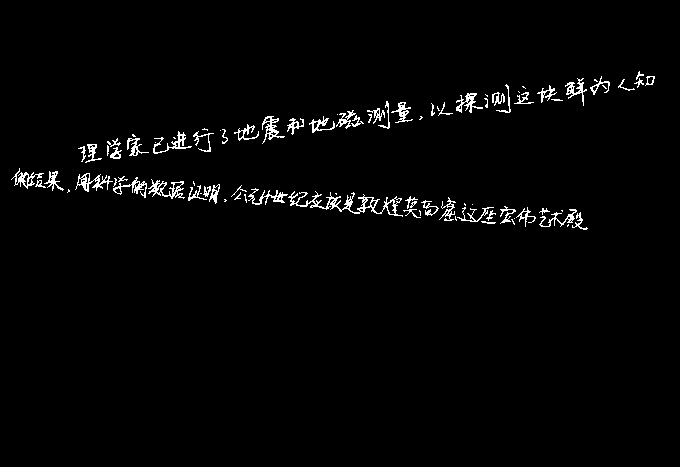 理学家已进行了地震和地磁测量,以探测这块鲜为人知
的结果,用科学的数据证明,公元4世纪应该是敦煌莫高窟这座宏伟艺术殿